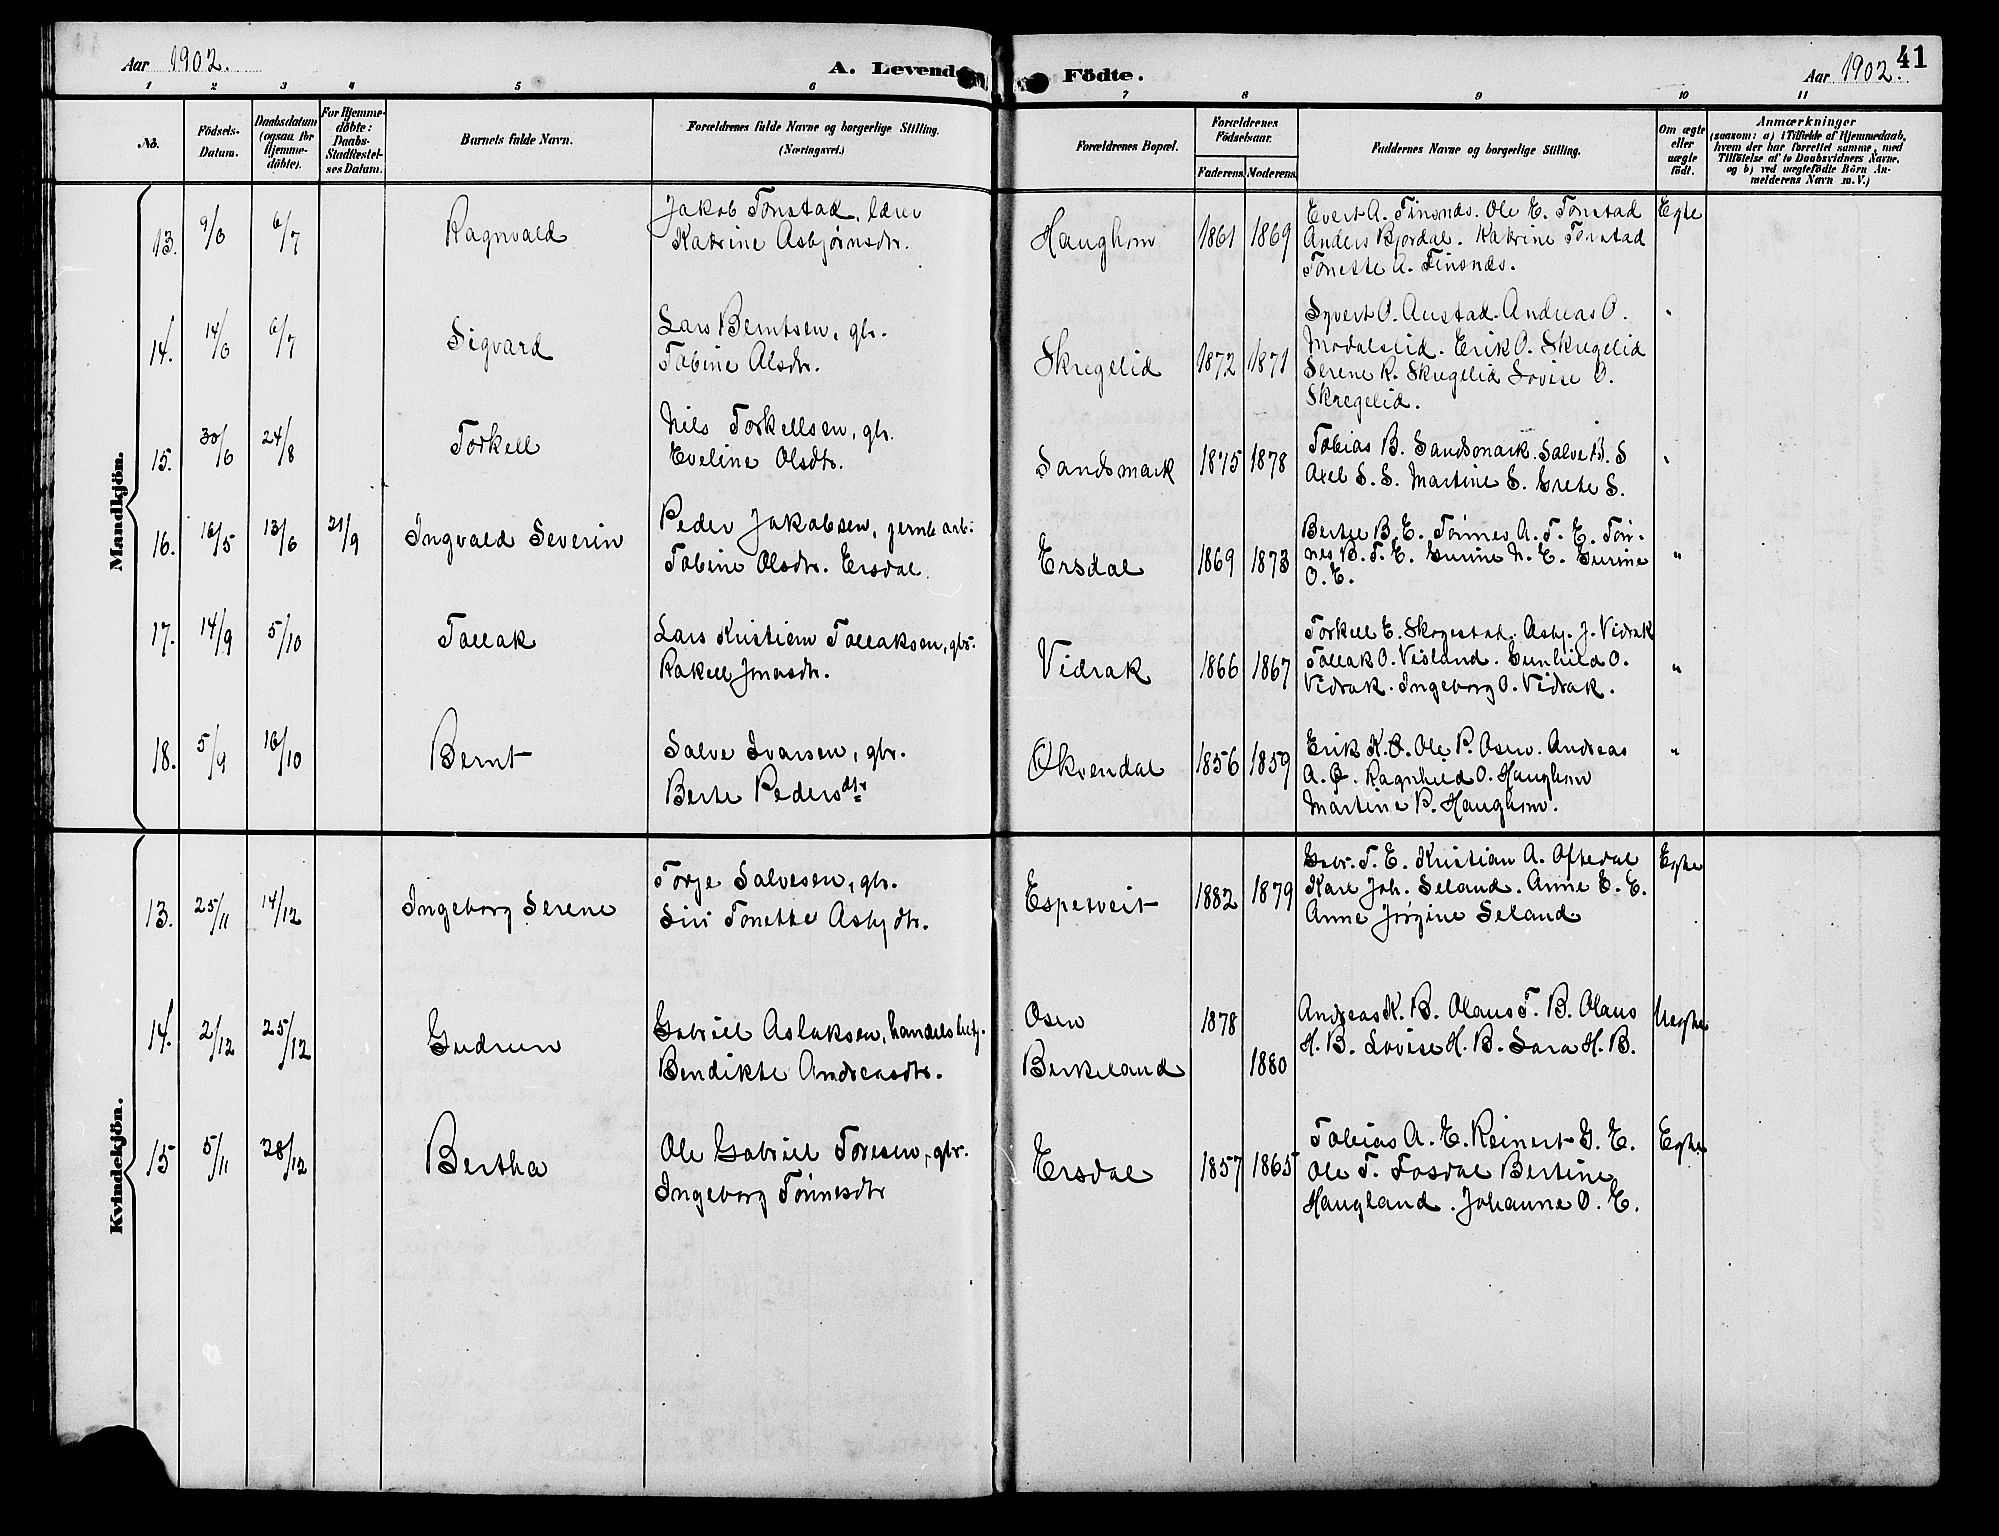 Aar 1902.
A. Levende Födte.
Aar 1902.
41
1 2 3 4 5 6 7 8 9 10 11
No.
Födsels-Datum.
Daabsdatum (ogsaa for Hjemme-döbte).
For Hjemme-döbte: Daabs-Stadfæstel-ses Datum.
Barnets fulde Navn.
Forældrenes fulde Navne og borgerlige Stilling.
(Næringsvei.)
Forældrenes Bopæl.
Forældrenes Födselsaar.
Faderens Moderens
Faddernes Navne og borgerlige Stilling.
Om ægte eller uægte födt.
Anmærkninger
(saasom: a) i Tilfælde af Hjemmedaab, hvem der har forrettet samme, med Tilföielse af to Daabsvidners Navne, og b) ved uægtefödte Börn An-melderens Navn m.V.)
Mandkjön.
13. 9/6 6/7 Ragnvald
Jakob Tonstad, lærer
Katrine Asbjørnsdtr.
Haughom 1861 1869
Evert A. Finsnes. Ole E. Tonstad
Anders Bjordal. Katrine Tonstad
Tonette A. Finsnes.
Egte
14. 14/6 6/7 Sigvard
Lars Berntsen, gbr.
Tobine Alsdtr.
Skregelid 1872 1871
Syvert O. Austad. Andreas O.
Modalslid. Erik O. Skregelid
Serene K. Skregelid Lovise O.
Skregelid.
"
15. 30/6 24/8 Torkell
Nils Torkellsen, gbr.
Eveline Olsdtr.
Sandsmark 1875 1878
Tobias B. Sandsmark. Salve B. S
Axel S. S. Martine S. Grete S.
"
16. 16/5 13/6 21/9 Ingvald Severin
Peder Jakobsen, jernb arb.
Tobine Olsdtr. Ersdal
Ersdal 1869 1873
Bertel B. E. Tønnes A. T. E. Tøn-
nes B. T. E. Gurine N. E. Gurine
O. E.
"
17. 14/9 5/10 Tallak
Lars Kristian Tallaksen, gbr.
Rakel Jonasdtr.
Vidrak 1866 1867
Torkell E. Skogestad. Asbj. J. Vidrak
Tallak O. Visland. Gunhild O.
Vidrak. Ingeborg O. Vidrak.
"
18. 5/9 16/10 Bernt
Salve Ivarsen, gbr.
Berte Pedersdtr
Økvendal 1856 1859
Erik K. Ø. Ole P. Osen. Andreas
A. Ø. Ragnhild O. Haughom
Martine P. Haughom.
"
Kvindekjön.
13. 25/11 14/12 Ingeborg Serene
Torje Salvesen, gbr.
Siri Tonette Asbjdtr.
Espetveit 1882 1879
Gabr. T. E. Kristian A. Oftedal
Karl Joh. Seland. Anne E. E.
Anne Jørgine Seland
Egte
14. 2/12 25/12 Gudrun
Gabriel Aslaksen, handelsbetj.
Bendikte Andreasdtr.
Osen 1878
Birkeland 1880
Andreas K. B. Olaus T. B. Olaus
H. B. Lovise H. B. Sara H. B.
Uegte
15 5/11 28/12 Bertha
Ole Gabriel Toresen, gbr.
Ingeborg Tønnesdtr
Ersdal 1857 1865
Tobias A. E. Reinert G. E.
Ole T. Fosdal Bertine
Haugland. Johanne O. E.
Egte